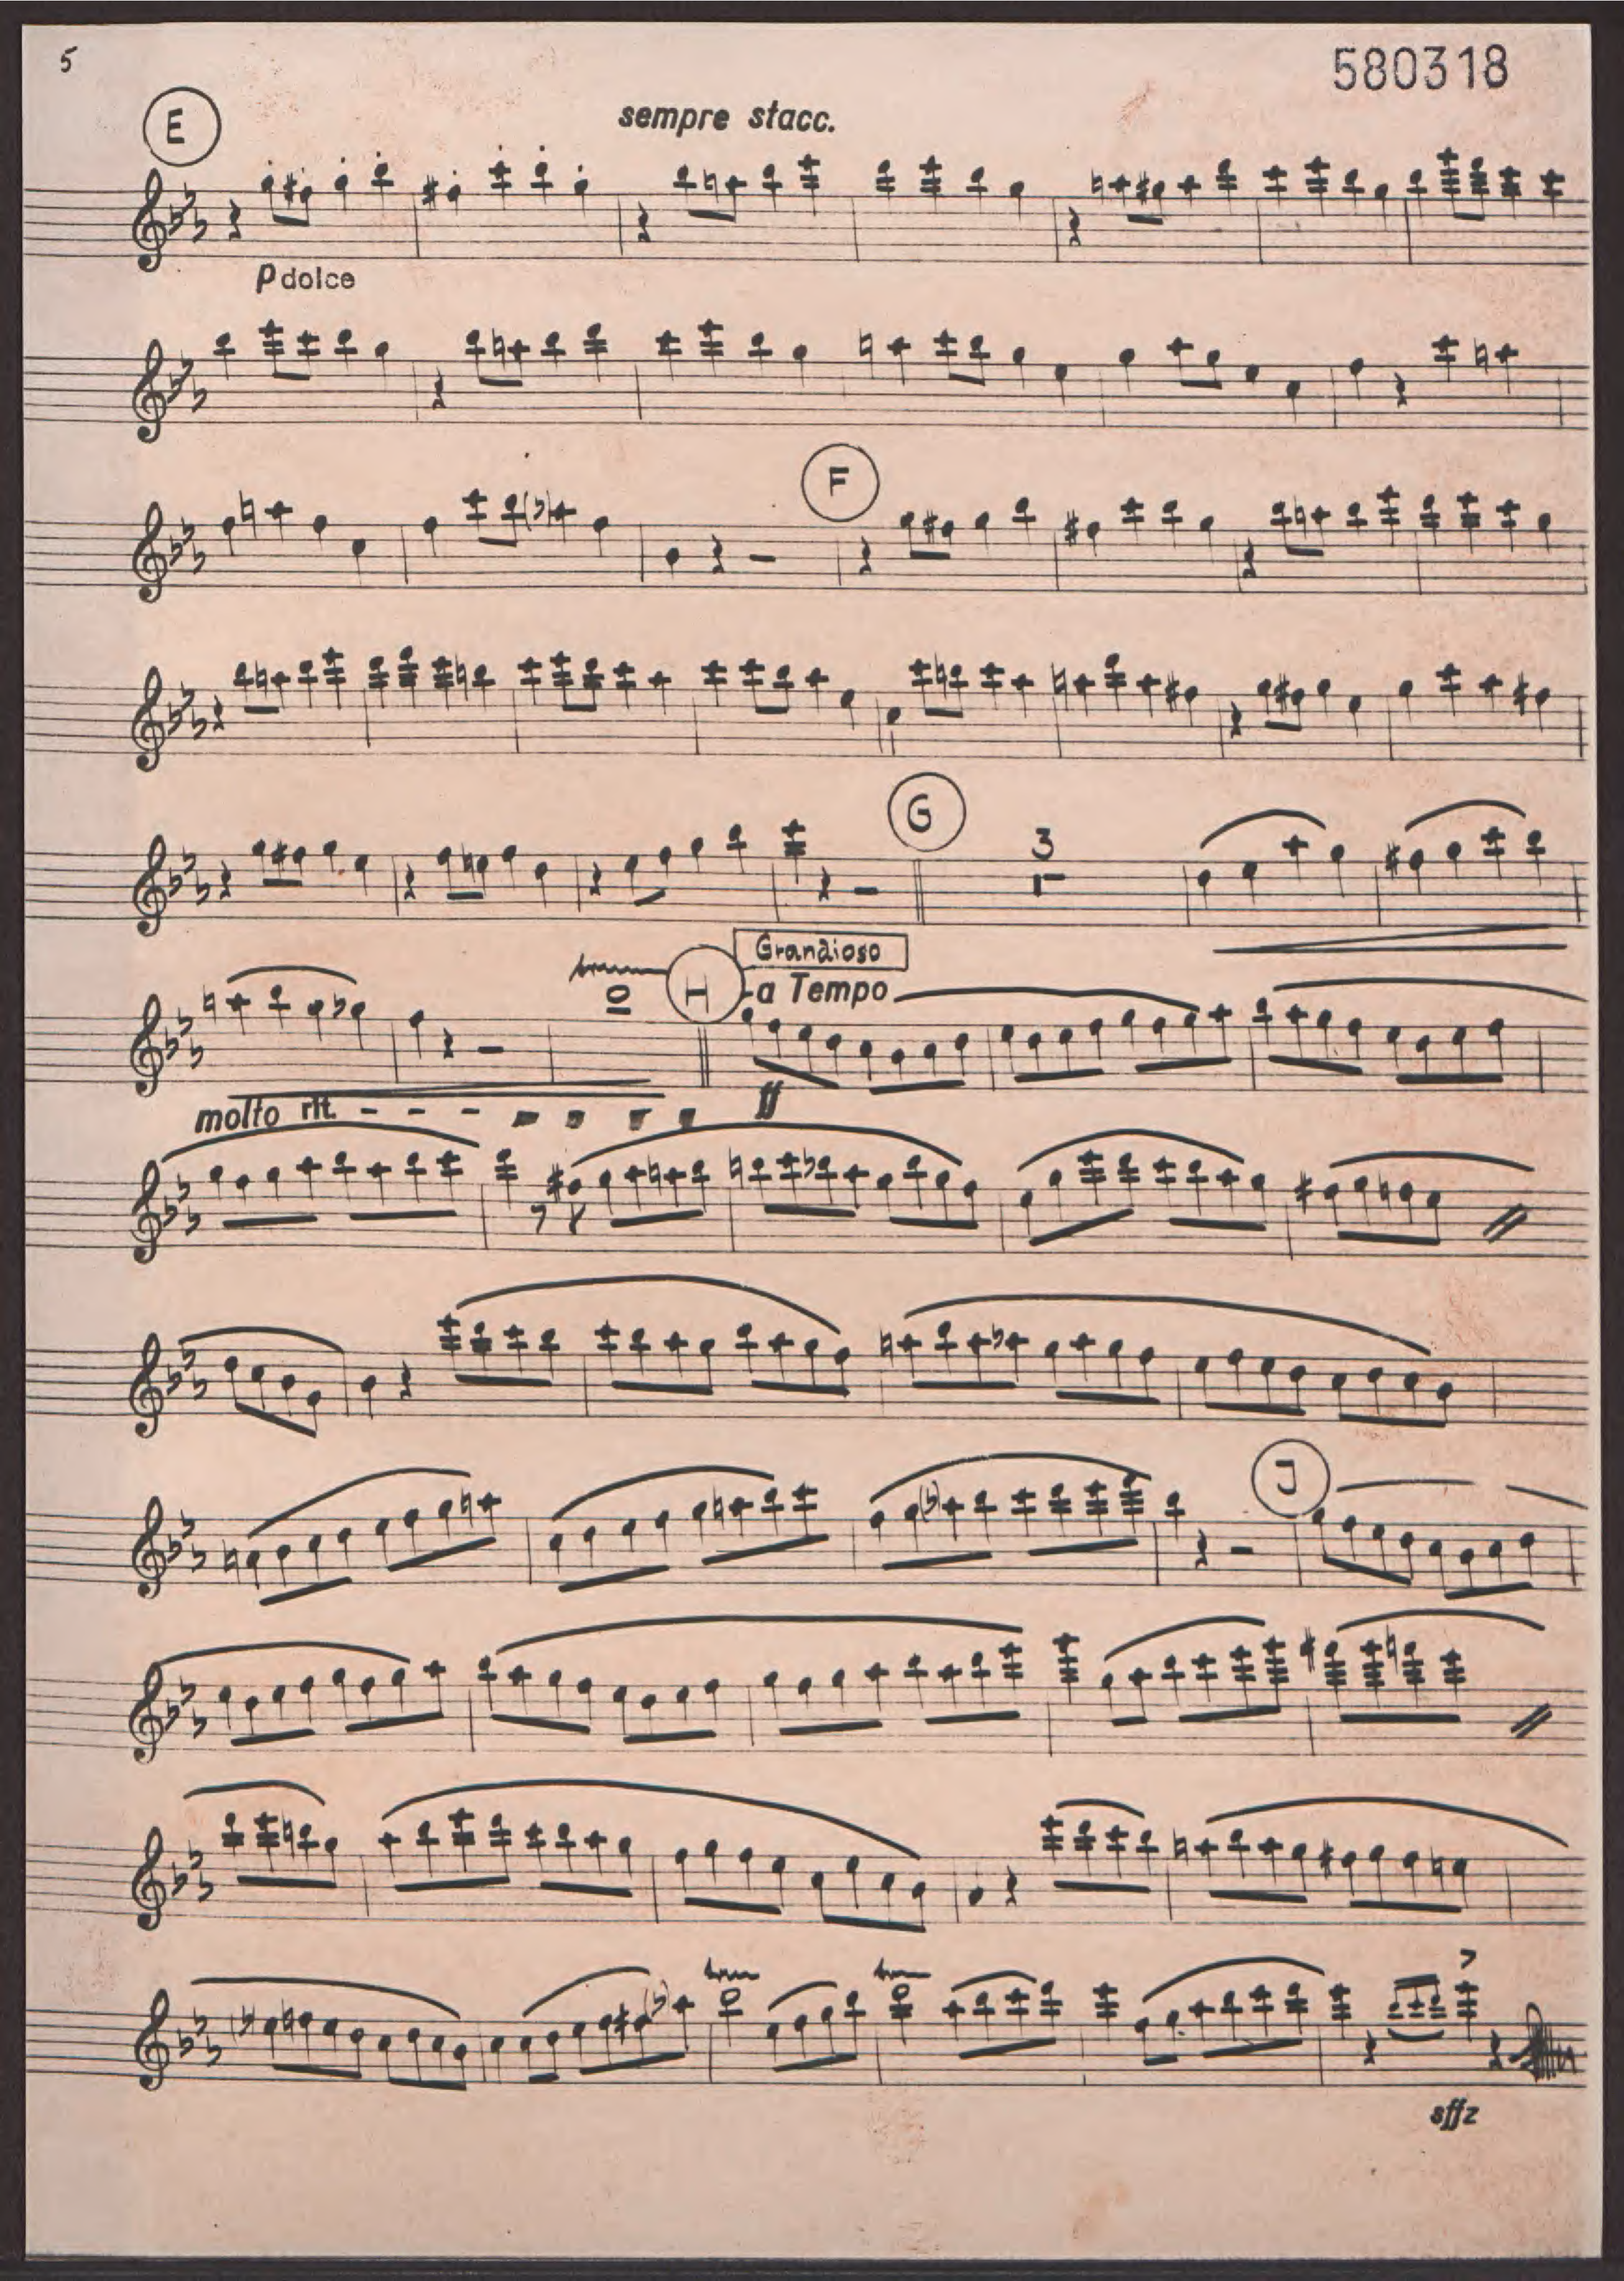 5
580318
E
sempre stacc.
p dolce
F
G
3
Grandioso
H
a Tempo
molto rit. - - - - - - -
ff
J
sffz